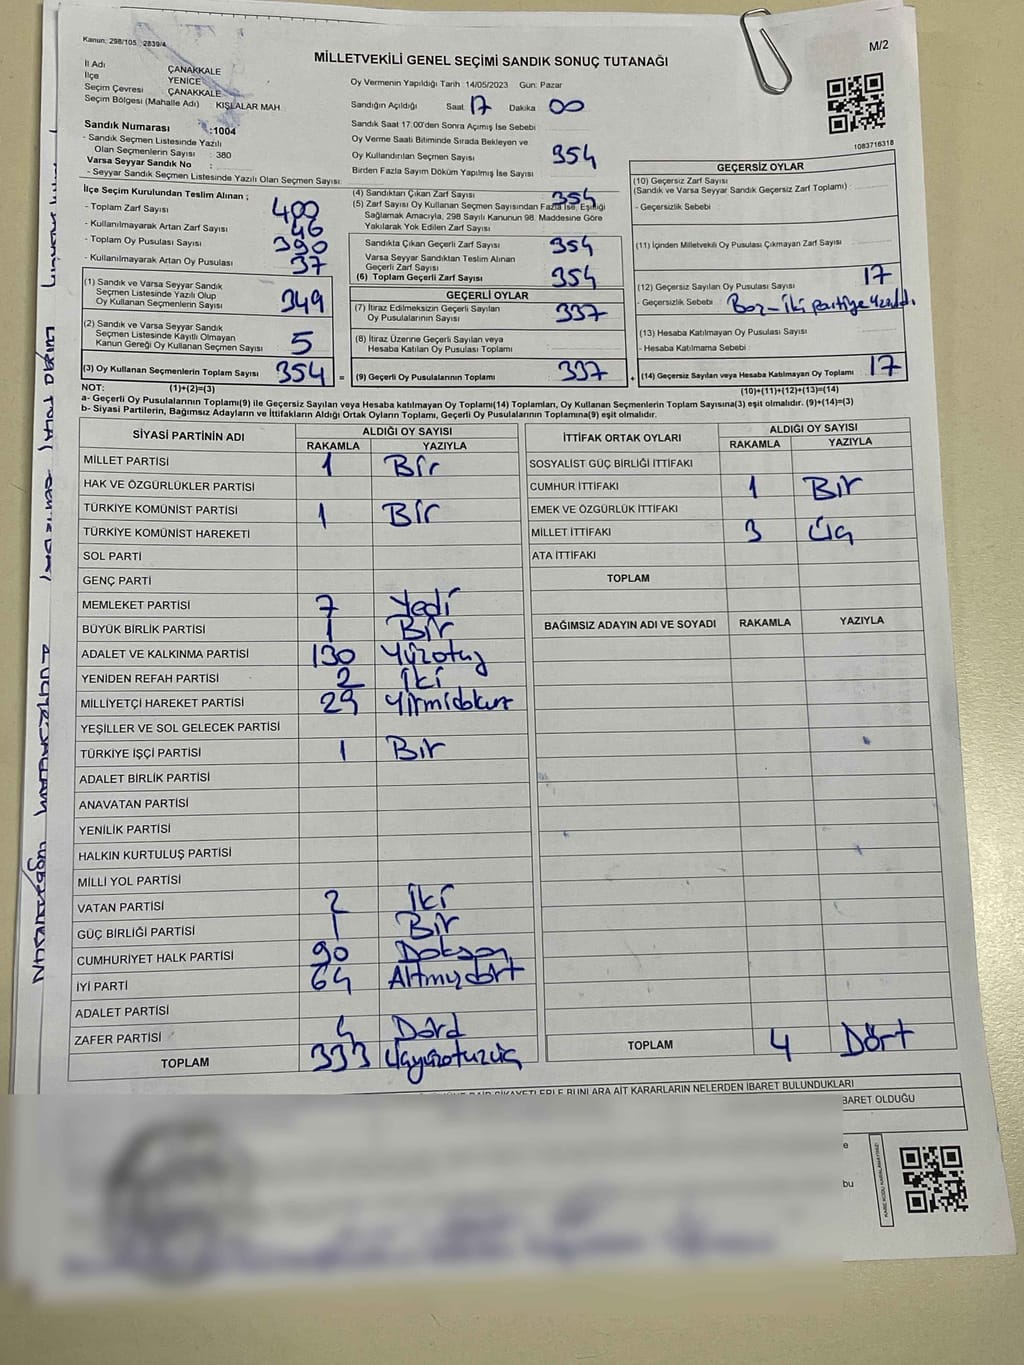 Kanun: 298/105, 2839/4
M/2
MİLLETVEKİLİ GENEL SEÇİMİ SANDIK SONUÇ TUTANAĞI
İl Adı ÇANAKKALE
İlçe YENİCE
Seçim Çevresi ÇANAKKALE
Seçim Bölgesi (Mahalle Adı) KIŞLALAR MAH
Sandık Numarası :1004
- Sandık Seçmen Listesinde Yazılı
Olan Seçmenlerin Sayısı : 380
Varsa Seyyar Sandık No :
- Seyyar Sandık Seçmen Listesinde Yazılı Olan Seçmen Sayısı:
Oy Vermenin Yapıldığı Tarih 14/05/2023 Gün: Pazar
Sandığın Açıldığı Saat 17 Dakika 00
Sandık Saat 17.00'den Sonra Açımış İse Sebebi
Oy Verme Saati Bitiminde Sırada Bekleyen ve
Oy Kullandırılan Seçmen Sayısı 354
Birden Fazla Sayım Döküm Yapılmış İse Sayısı
1083716318
İlçe Seçim Kurulundan Teslim Alınan ;
- Toplam Zarf Sayısı 400
- Kullanılmayarak Artan Zarf Sayısı 46
- Toplam Oy Pusulası Sayısı 390
- Kullanılmayarak Artan Oy Pusulası 37
(1) Sandık ve Varsa Seyyar Sandık
Seçmen Listesinde Yazılı Olup
Oy Kullanan Seçmenlerin Sayısı 349
(2) Sandık ve Varsa Seyyar Sandık
Seçmen Listesinde Kayıtlı Olmayan
Kanun Gereği Oy Kullanan Seçmen Sayısı 5
(3) Oy Kullanan Seçmenlerin Toplam Sayısı 354 =
(4) Sandıktan Çıkan Zarf Sayısı 354
(5) Zarf Sayısı Oy Kullanan Seçmen Sayısından Fazla İse, Eşitliği
Sağlamak Amacıyla, 298 Sayılı Kanunun 98. Maddesine Göre
Yakılarak Yok Edilen Zarf Sayısı
Sandıkta Çıkan Geçerli Zarf Sayısı 354
Varsa Seyyar Sandıktan Teslim Alınan
Geçerli Zarf Sayısı
(6) Toplam Geçerli Zarf Sayısı 354
GEÇERLİ OYLAR
(7) İtiraz Edilmeksizin Geçerli Sayılan
Oy Pusulalarının Sayısı 337
(8) İtiraz Üzerine Geçerli Sayılan veya
Hesaba Katılan Oy Pusulası Toplamı
(9) Geçerli Oy Pusulalarının Toplamı 337 +
GEÇERSİZ OYLAR
(10) Geçersiz Zarf Sayısı
(Sandık ve Varsa Seyyar Sandık Geçersiz Zarf Toplamı) :
- Geçersizlik Sebebi :
(11) İçinden Milletvekili Oy Pusulası Çıkmayan Zarf Sayısı
(12) Geçersiz Sayılan Oy Pusulası Sayısı 17
- Geçersizlik Sebebi : Boz-iki partiye yazıldı
(13) Hesaba Katılmayan Oy Pusulası Sayısı
- Hesaba Katılmama Sebebi :
(14) Geçersiz Sayılan veya Hesaba Katılmayan Oy Toplamı 17
NOT: (1)+(2)=(3)
(10)+(11)+(12)+(13)=(14)
a- Geçerli Oy Pusulalarının Toplamı(9) ile Geçersiz Sayılan veya Hesaba Katılmayan Oy Toplamı(14) Toplamları, Oy Kullanan Seçmenlerin Toplam Sayısına(3) eşit olmalıdır. (9)+(14)=(3)
b- Siyasi Partilerin, Bağımsız Adayların ve İttifakların Aldığı Ortak Oyların Toplamı, Geçerli Oy Pusulalarının Toplamına(9) eşit olmalıdır.
SİYASİ PARTİNİN ADI ALDIĞI OY SAYISI
RAKAMLA YAZIYLA
MİLLET PARTİSİ 1 Bir
HAK VE ÖZGÜRLÜKLER PARTİSİ
TÜRKİYE KOMÜNİST PARTİSİ 1 Bir
TÜRKİYE KOMÜNİST HAREKETİ
SOL PARTİ
GENÇ PARTİ
MEMLEKET PARTİSİ 7 Yedi
BÜYÜK BİRLİK PARTİSİ 1 Bir
ADALET VE KALKINMA PARTİSİ 130 Yüzotuz
YENİDEN REFAH PARTİSİ 2 İki
MİLLİYETÇİ HAREKET PARTİSİ 29 Yirmidokuz
YEŞİLLER VE SOL GELECEK PARTİSİ
TÜRKİYE İŞÇİ PARTİSİ 1 Bir
ADALET BİRLİK PARTİSİ
ANAVATAN PARTİSİ
YENİLİK PARTİSİ
HALKIN KURTULUŞ PARTİSİ
MİLLİ YOL PARTİSİ
VATAN PARTİSİ 2 İki
GÜÇ BİRLİĞİ PARTİSİ 1 Bir
CUMHURİYET HALK PARTİSİ 90 Doksan
İYİ PARTİ 64 Altmışdört
ADALET PARTİSİ
ZAFER PARTİSİ 4 Dörd
TOPLAM 333 Üçyüzotuzüç
İTTİFAK ORTAK OYLARI ALDIĞI OY SAYISI
RAKAMLA YAZIYLA
SOSYALİST GÜÇ BİRLİĞİ İTTİFAKI
CUMHUR İTTİFAKI 1 Bir
EMEK VE ÖZGÜRLÜK İTTİFAKI
MİLLET İTTİFAKI 3 Üç
ATA İTTİFAKI
TOPLAM
BAĞIMSIZ ADAYIN ADI VE SOYADI RAKAMLA YAZIYLA
TOPLAM 4 Dört
KARARLARIN NELERDEN İBARET BULUNDUKLARI
BARET OLDUĞU
bu